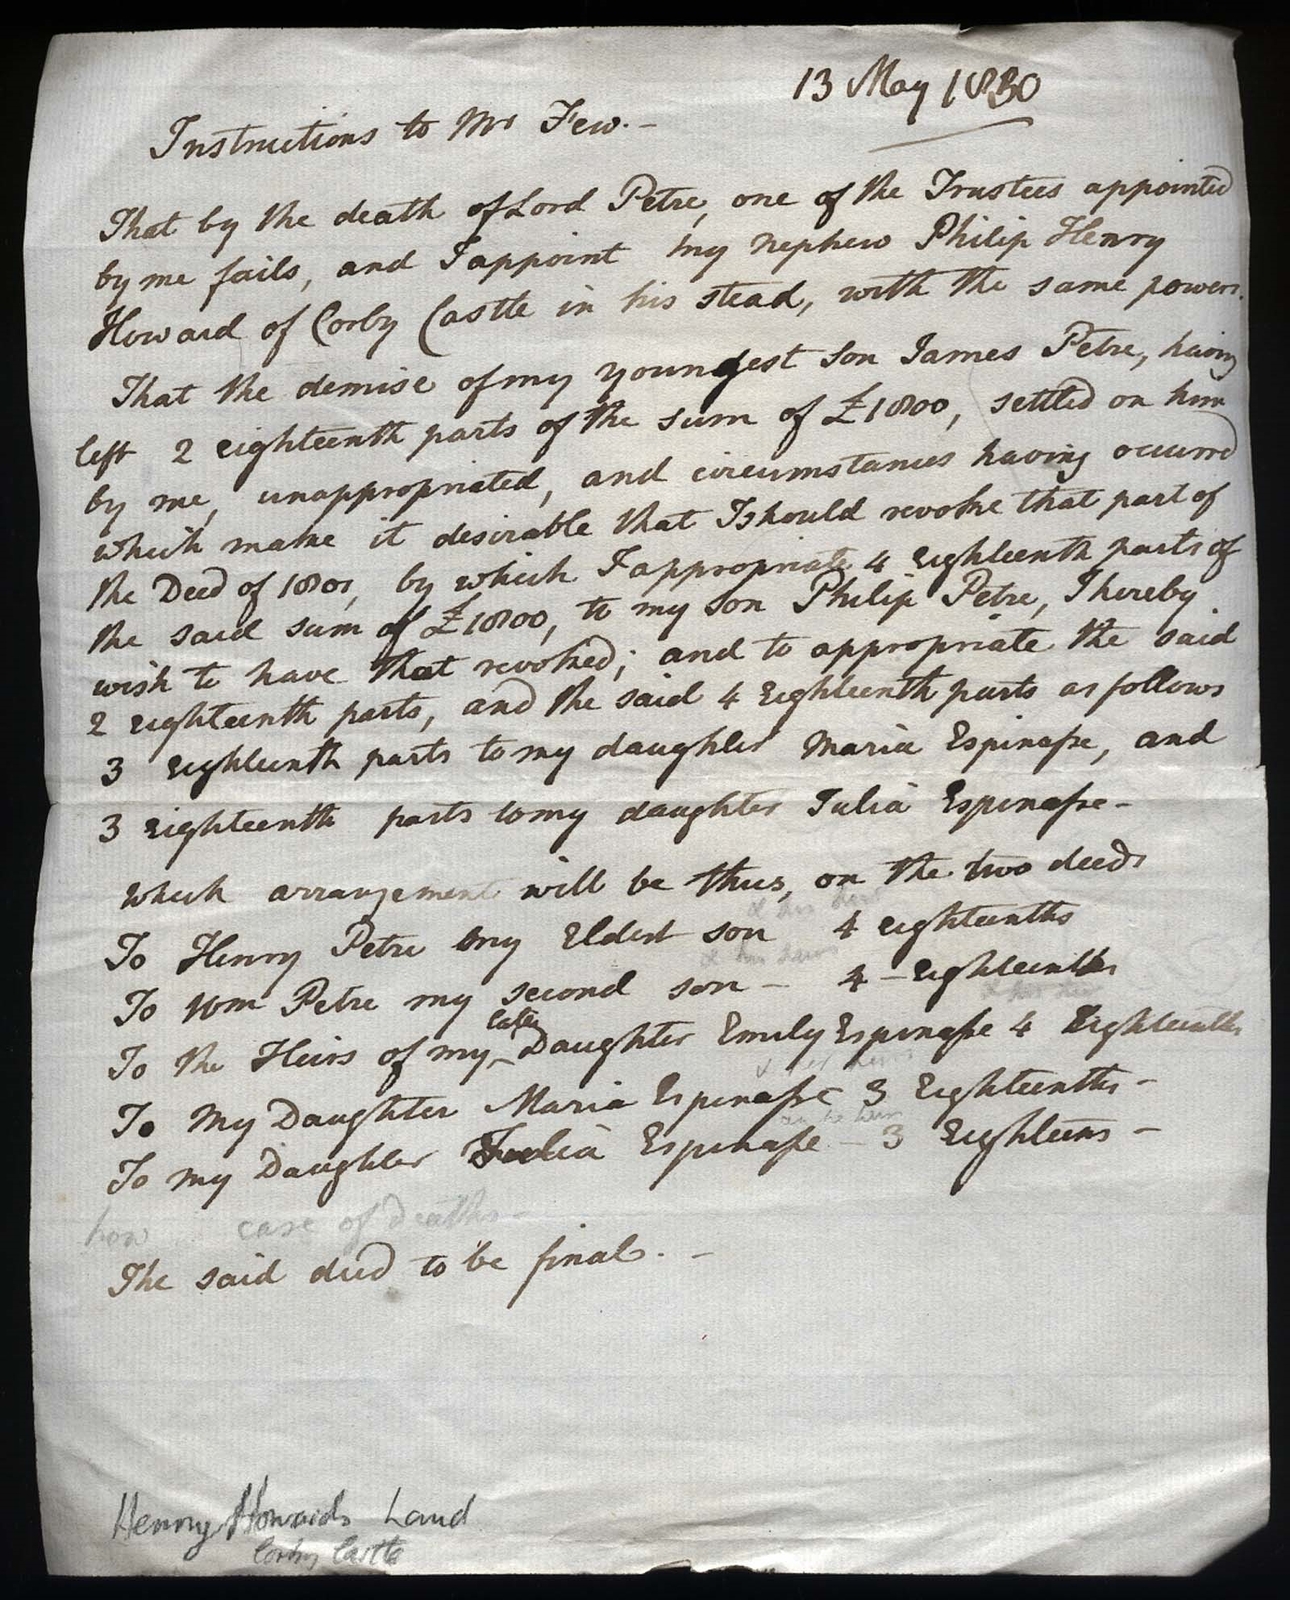 13 May 1830
Instructions to Mr Few. -
That by the death of Lord Petre, one of the Trustees appointed
by me fails, and I appoint my nephew Philip Henry
Howard of Corby Castle in his stead, with the same powers.
That the demise of my youngest son James Petre, having
left 2 eighteenth parts of the sum of £1800, settled on him
by me, unappropriated, and circumstances having occurred
which make it desirable that I should revoke that part of
the Deed of 1801, by which I appropriate 4 Eighteenth parts of
the said sum of £1800, to my son Philip Petre, I hereby
wish to have that revoked; and to appropriate the said
2 eighteenth parts, and the said 4 Eighteenth parts as follows
3 Eighteenth parts to my daughter Maria Espinasse, and
3 Eighteenth parts to my daughter Julia Espinasse -
which arrangement will be thus, on the two deeds
& his heirs
To Henry Petre my Eldest son 4 eighteenths
& his heirs
To Wm Petre my second son - 4 - Eighteenths
& her heirs
late
To the Heirs of my Daughter Emily Espinasse 4 Eighteenths
& her heirs
To My Daughter Maria Espinasse 3 Eighteenths -
To my Daughter Julia Espinasse - 3 Eighteens -
how case of Deaths -
The said deed to be final. -
Henry Howards hand
Corby Castle